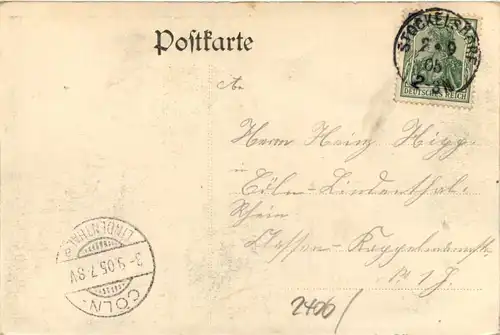 Postkarte
STOCKELSDORF
2 9
05
DEUTSCHES REICH
An
Herrn Heinz Hipp
in Cöln-Lindenthal.
Rhein
Classen-Kappelmannstr.
CÖLN-LINDENTHAL
3.9.05.7-8V
2406